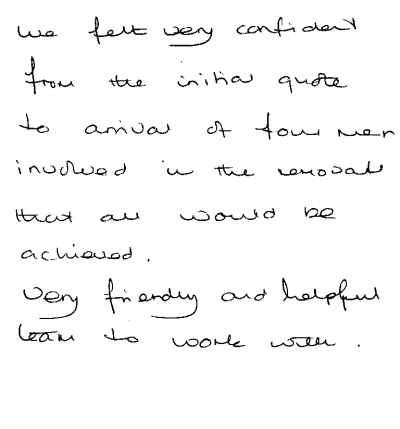 We felt very confident
from the initial quote
to arrival of four men
involved in the removals
that all would be
achieved.
Very friendly and helpful
team to work with.